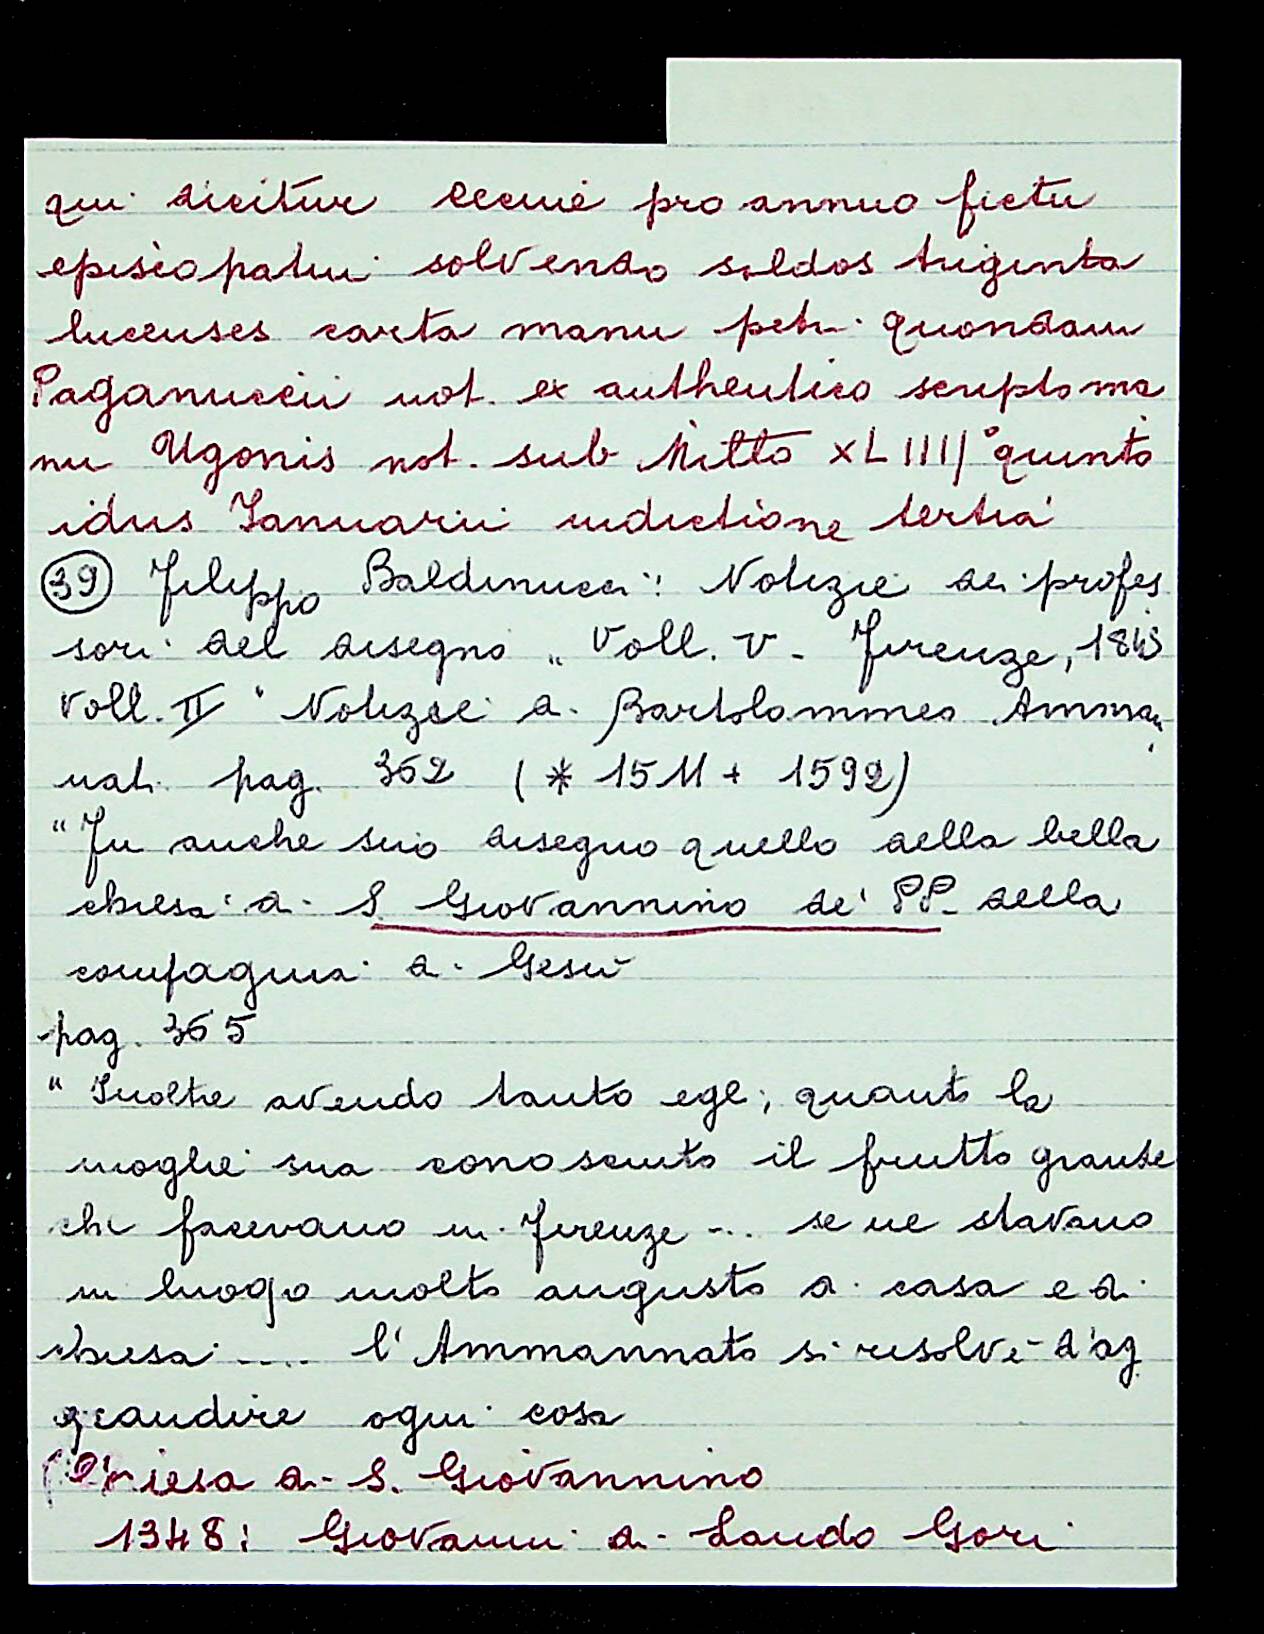 qui dicitur Cerme pro annuo fictu
episcopatui solvendo soldos triginta
lucenses carta manu petri quondam
Paganuccii not. ex authentico scripto ma
nu Ugonis not. sub Mitto XLIII° quinto
idus Januarii indictione tertia
39 Filippo Baldinucci: Notizie dei profes
sori del disegno „ Voll. V - Firenze, 1845
Voll. II " Notizie di Bartolommeo Amman
nati pag. 362 (* 1511 + 1592)
"Fu anche suo disegno quello della bella
chiesa di S. Giovannino de' PP. della
compagnia di Gesù
pag. 365
" Inoltre avendo tanto egli, quanto la
moglie sua conosciuto il frutto grande
che facevano in Firenze ... se ne stavano
in luogo molto angusto di casa e di
chiesa .... l'Ammannato si risolvè d'ag
grandire ogni cosa
Chiesa di S. Giovannino
1348: Giovanni di Lando Gori